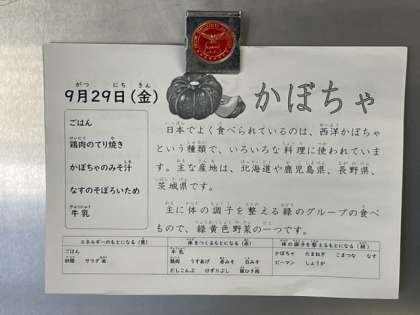 9月29日(金)
かぼちゃ
ごはん
鶏肉のてり焼き
かぼちゃのみそ汁
なすのそぼろいため
牛乳
日本でよく食べられているのは、西洋かぼちゃ
という種類で、いろいろな料理に使われていま
す。主な産地は、北海道や鹿児島県、長野県、
茨城県です。
主に体の調子を整える緑のグループの食べ
もので、緑黄色野菜の一つです。
エネルギーのもとになる(黄)
体をつくるもとになる(赤)
体の調子を整えるもとになる(緑)
ごはん
砂糖 サラダ油
牛乳
鶏肉 うすあげ 赤みそ 白みそ
だしこんぶ けずりぶし 豚ひき肉
かぼちゃ たまねぎ こまつな なす
ピーマン しょうが